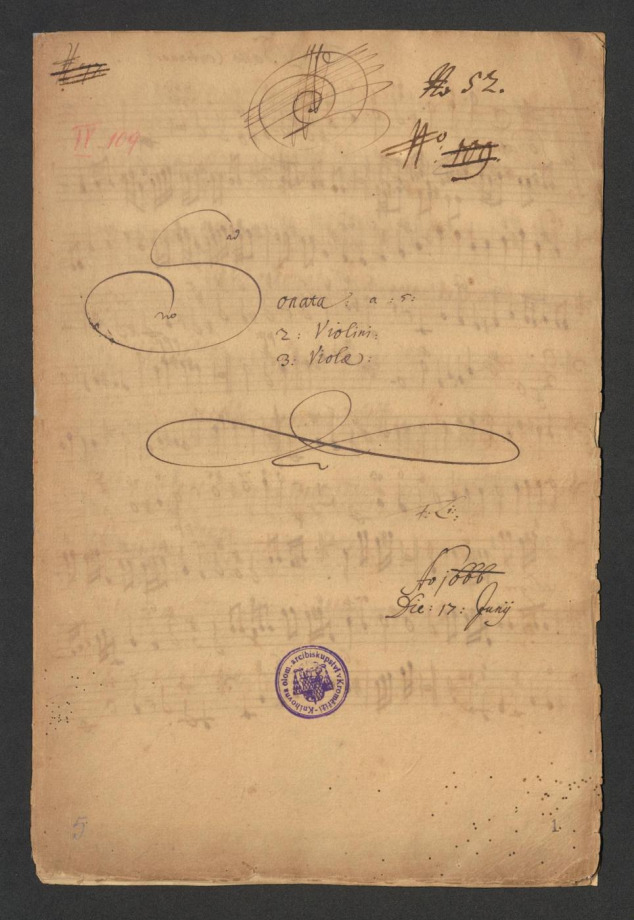 No 52.
No. 109.
IV 109
Sonata a :5:
2: Violini:
3: Violæ:
Ao 1666
Die: 17: Junij
Knihovna olom. arcibiskupství v Kroměříži
5
1.